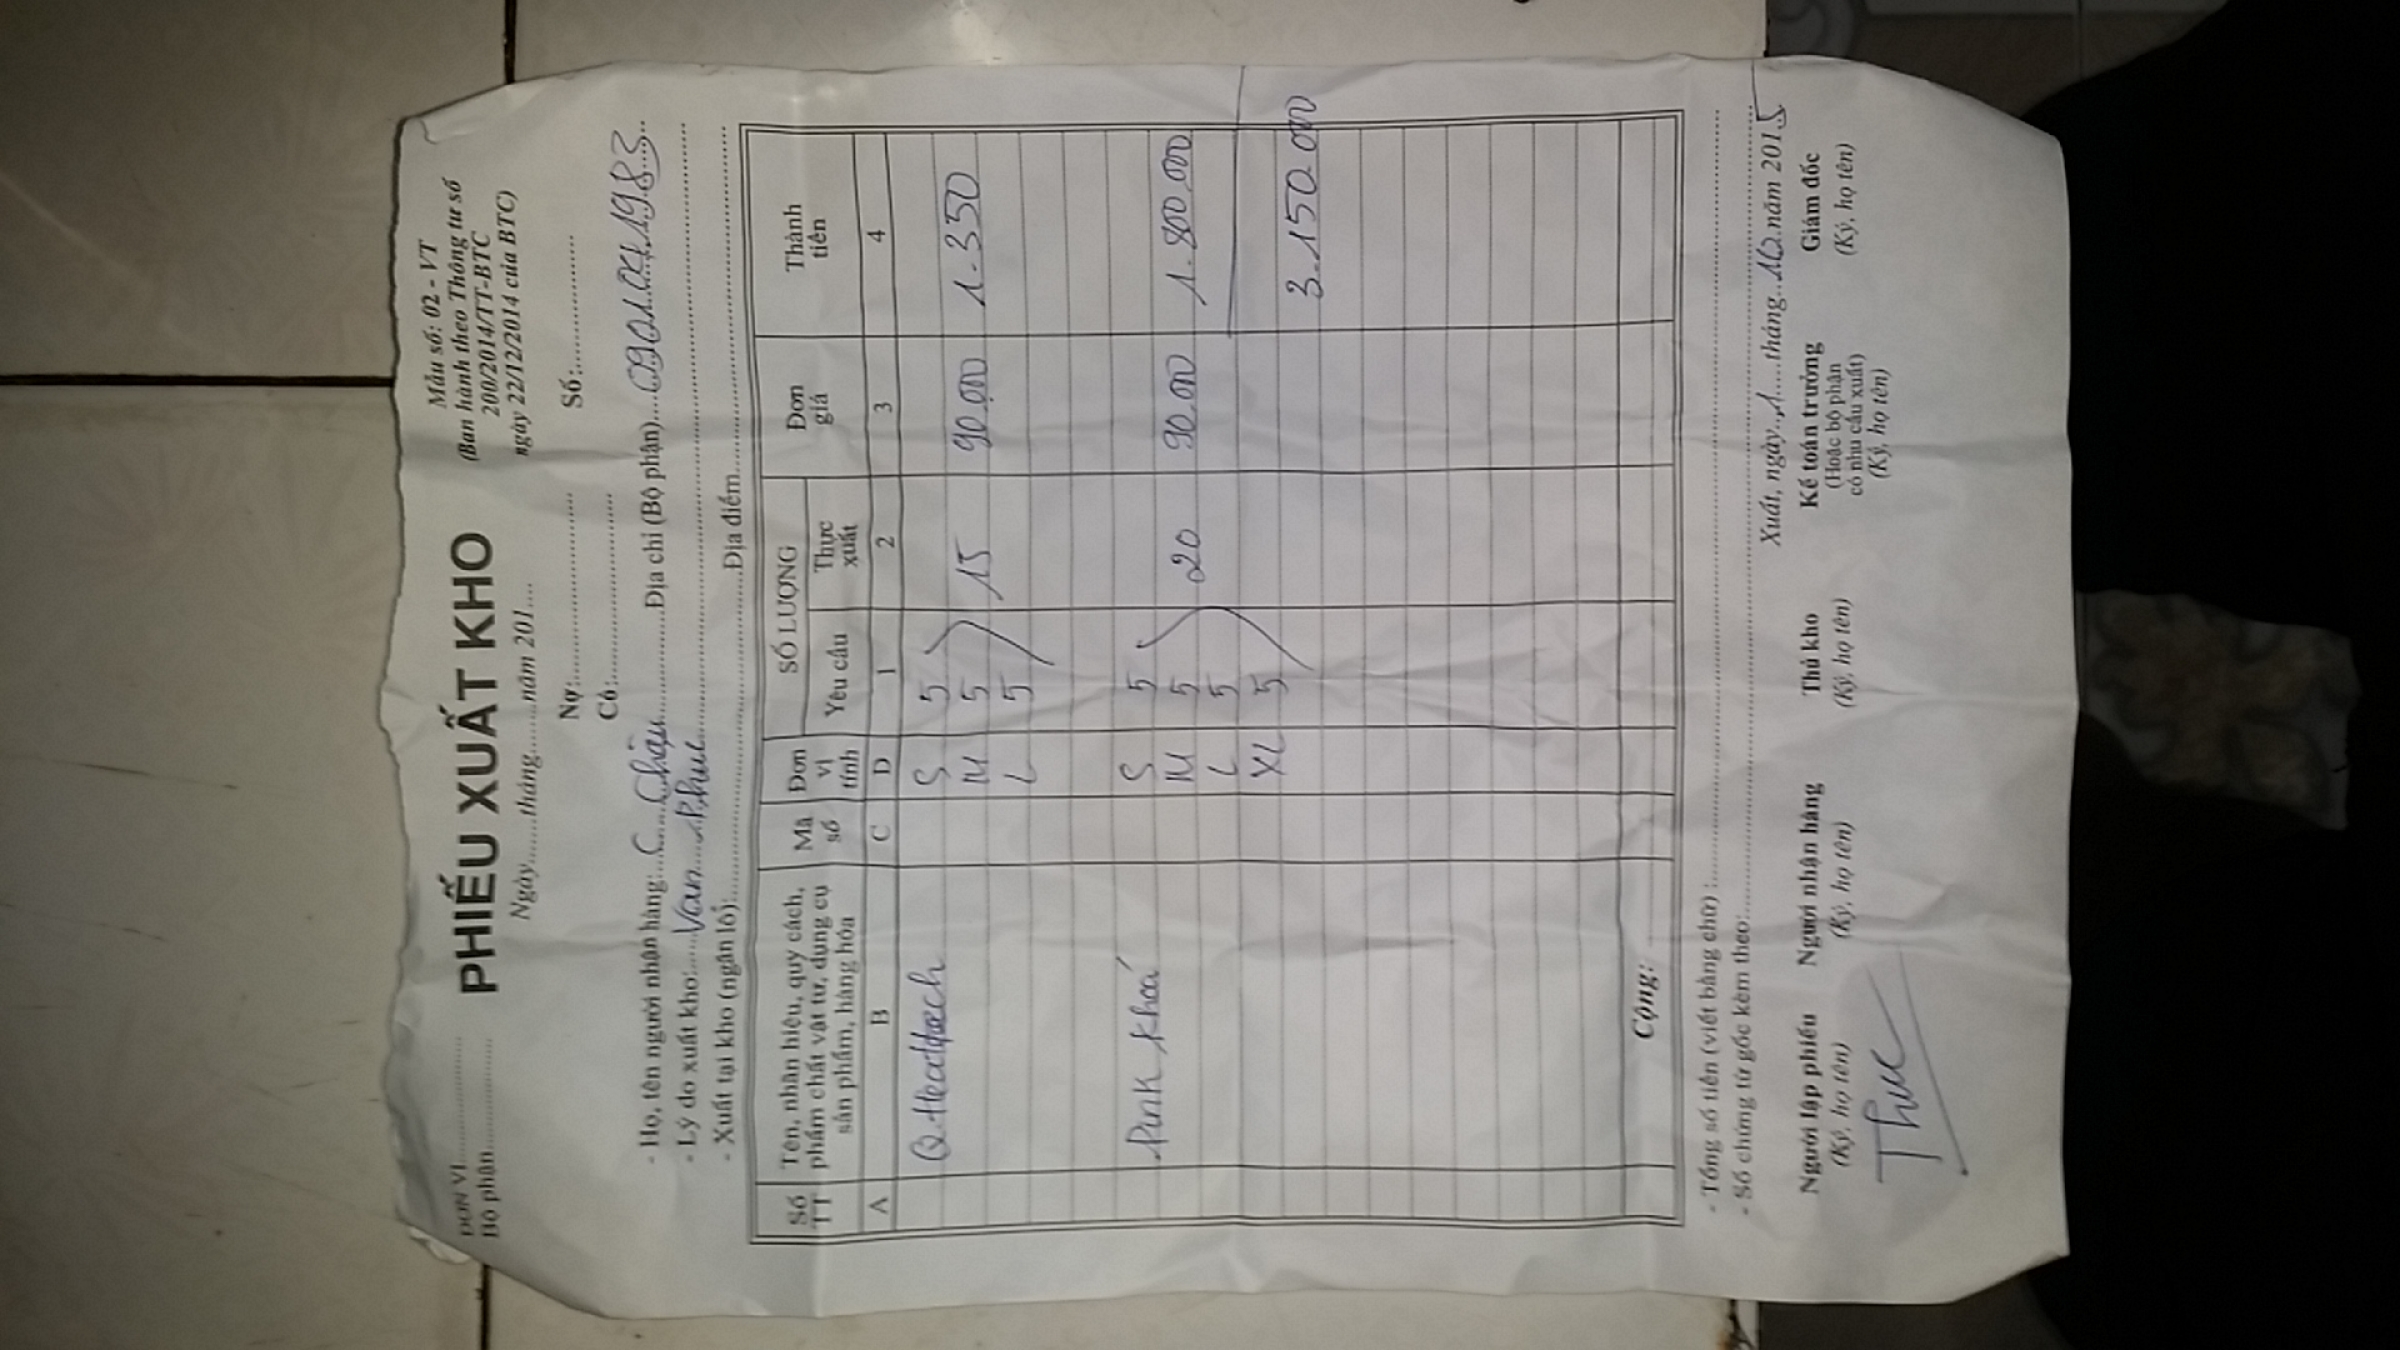 ĐƠN VỊ.................... Mẫu số: 02 - VT
Bộ phận.................... (Ban hành theo Thông tư số
200/2014/TT-BTC
ngày 22/12/2014 của BTC)
PHIẾU XUẤT KHO
Ngày........tháng........năm 201....
Nợ:.................... Số:....................
Có:....................
- Họ, tên người nhận hàng: C Châu Địa chỉ (Bộ phận)
- Lý do xuất kho: Van Phuc
- Xuất tại kho (ngăn lô): Địa điểm
Số TT Tên, nhãn hiệu, quy cách, phẩm chất vật tư, dụng cụ sản phẩm, hàng hóa Mã số Đơn vị tính SỐ LƯỢNG Yêu cầu Thực xuất Đơn giá Thành tiền
A B C D 1 2 3 4
S 5
M 5 15 90.000 1.350
L 5
Pink khoá S 5
M 5 20 90.000 1.800.000
L 5
XL 5 3.150.000
Cộng:
- Tổng số tiền (viết bằng chữ) :
- Số chứng từ gốc kèm theo:
Xuất, ngày 1 tháng 10 năm 2015
Người lập phiếu Người nhận hàng Thủ kho Kế toán trưởng Giám đốc
(Ký, họ tên) (Ký, họ tên) (Ký, họ tên) (Hoặc bộ phận có nhu cầu xuất) (Ký, họ tên) (Ký, họ tên)
Thuc